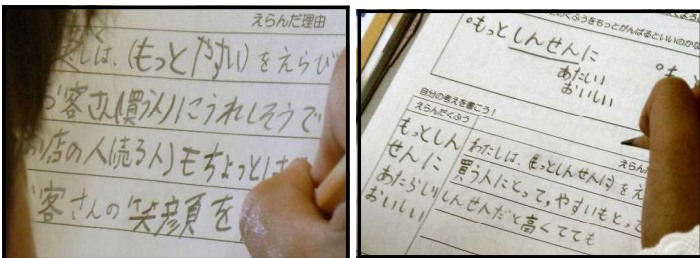 えらんだ理由
しは、(もっとやすい)をえらび
お客さん(買う人)にうれしそうで
お店の人(売る人)もちょっとは
客さんの笑顔を
くふうをもっとがんばるといいのかな
○もっとしんせんに
あたらしい
おいしい
○も
自分の考えを書こう!
えらんだくふう
もっとしん
せんに
あたらしい
おいしい
えらん
わたしは、(もっとしんせんに)をえ
買う人にとって,やすいもとって
しんせんだと高くても